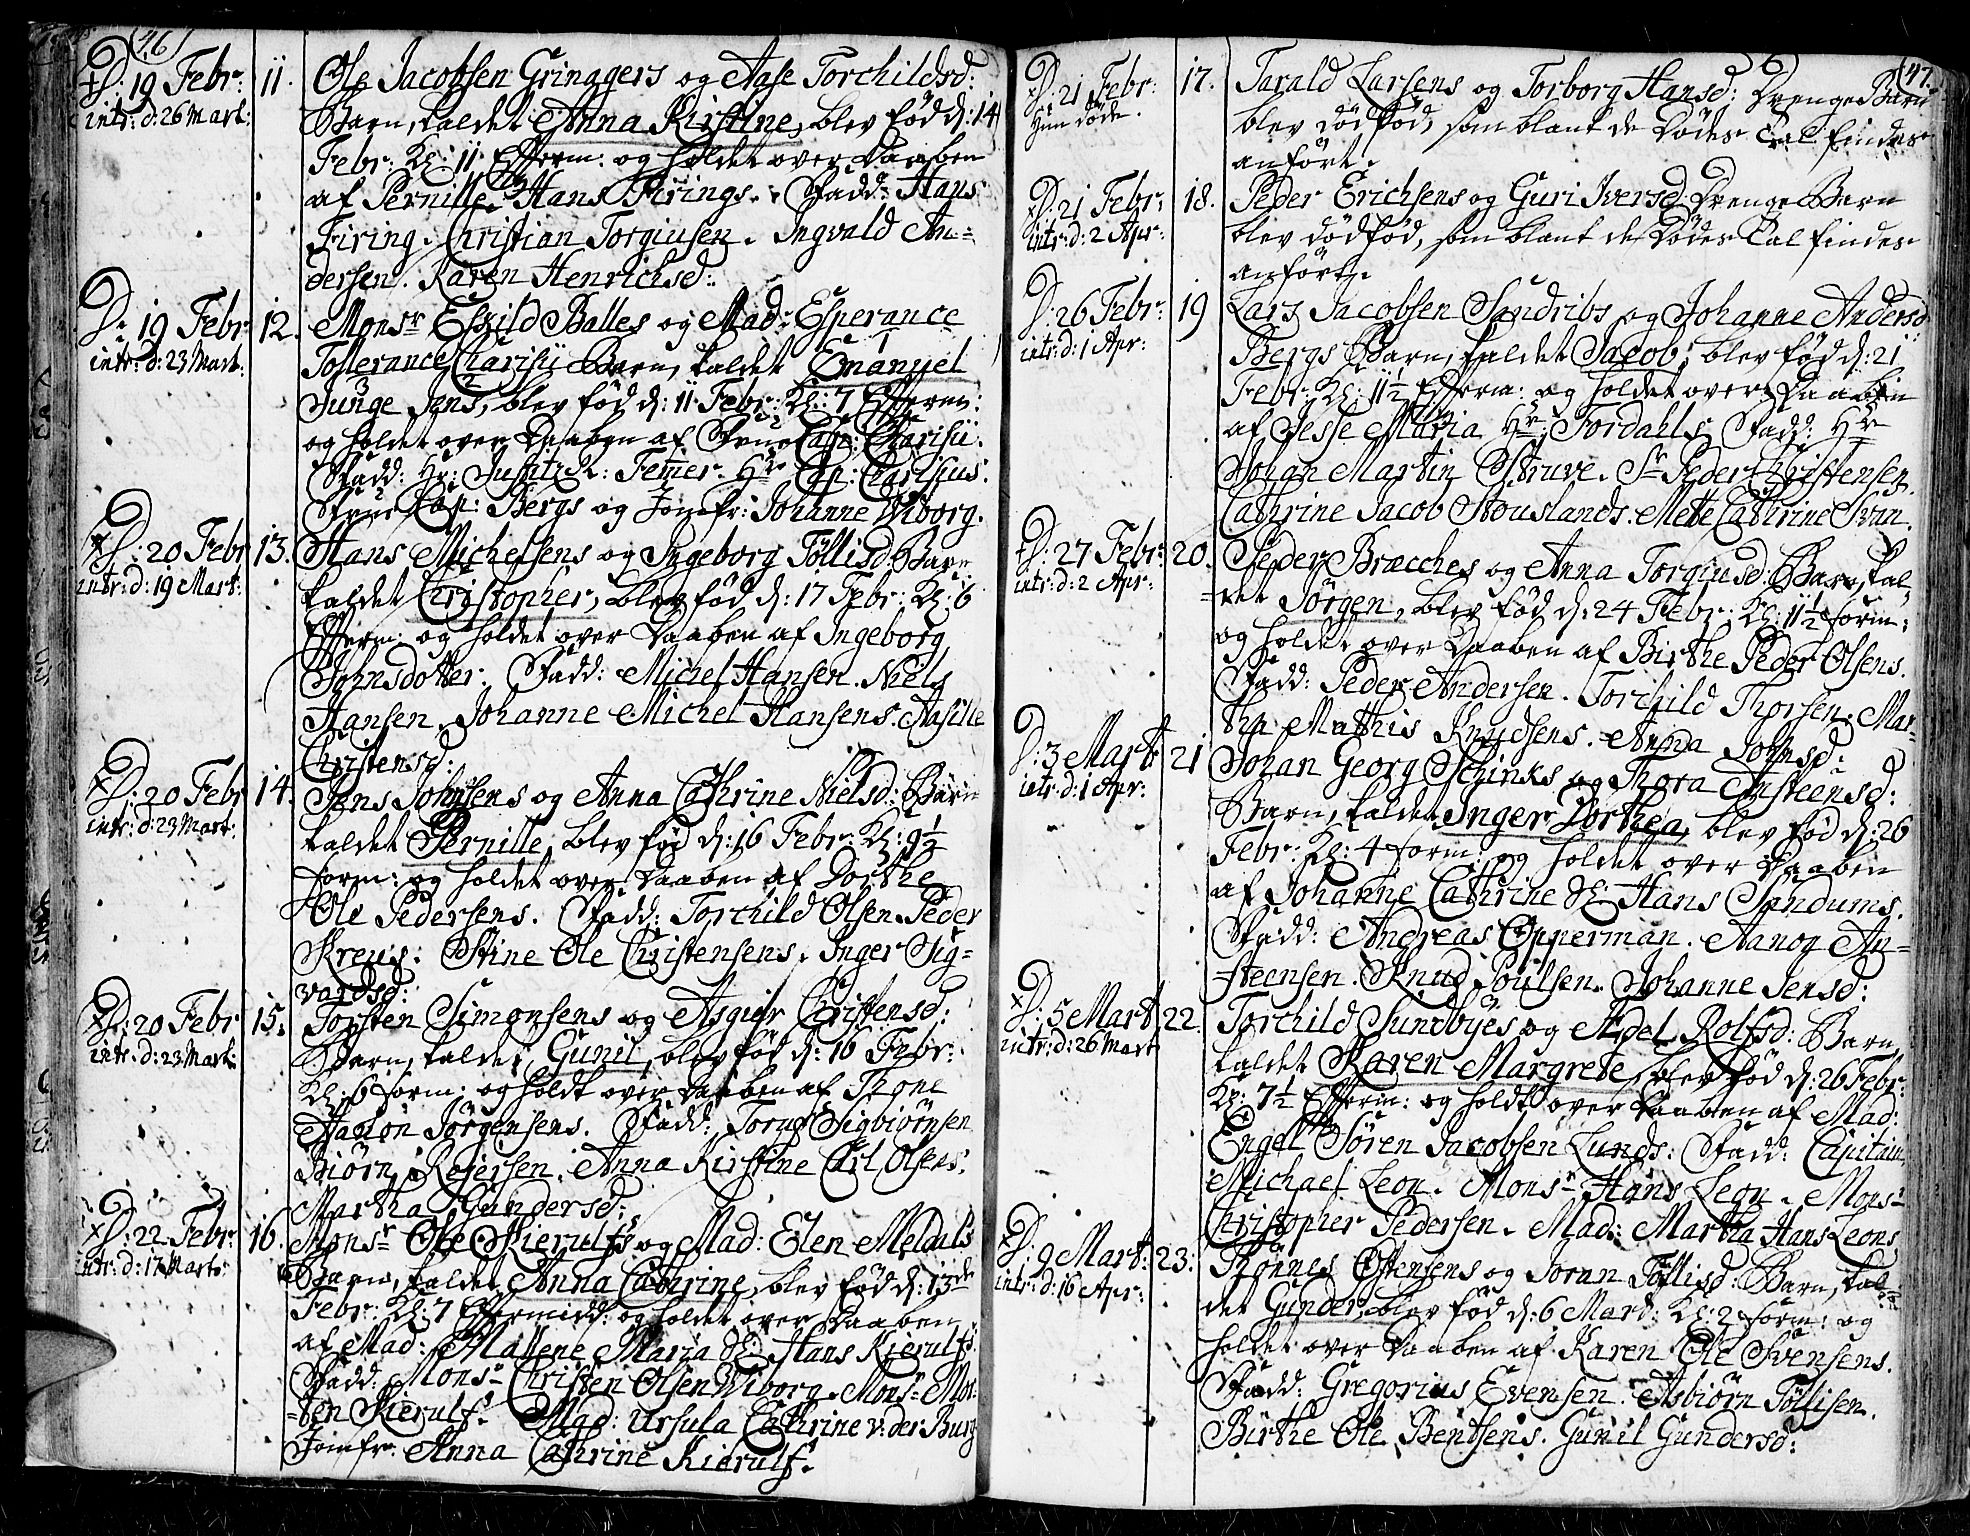 46
D: 19 Febr: 11. Ole Jacobsen Gringgers og Aase Torchildsd:
intr: d: 26 Mart: Barn, kaldet Anna Kirstine, blev fød d: 14
Febr: Kl: 11 Efterm: og holdet over Daaben
af Pernille Hans Firings. Fadd: Hans
Firing. Christian Torgiusen. Ingvald An-
dersen. Karen Henrichsd:
D: 19 Febr: 12. Monsr Eskild Balles og Mad: Esperance
intr: d: 23 Mart: Tollerance Charisii Barn, kaldet Emanuel
Junge Jens, blev fød d: 11 Febr: Kl: 7 Efterm:
og holdet over Daaben af Frue Cap: Charisii.
Fadd: Hr: Justitz R: Femer. Hr Cap: Charisius.
Frue Cap: Bergs og Jomfr: Johanne Wiborg.
D: 20 Febr 13. Hans Michelsens og Ingeborg Tøllisd: Barn
intr: d: 19 Mart: kaldet Christopher, blev fød d: 17 Febr: Kl: 6
Efterm: og holdet over Daaben af Ingeborg
Johnsdotter. Fadd: Michel Hansen. Niels
Hansen. Johanne Michel Hansens. Aasille
Christensd:
D: 20 Febr 14. Jens Johnsens og Anna Cathrine Nielsd: Barn
intr: d: 23 Mart: kaldet Pernille, blev fød d: 16 Febr: Kl: 9½
form: og holdet over Daaben af Dorthe
Ole Pedersens. Fadd: Torchild Olsen. Peder
Kreus. Stine Ole Christensens. Inger Sig-
vardsd:
D: 20 Febr 15. Torsten Simonsens og Asgier Christensd:
intr: d: 23 Mart: Barn, kaldet Gunil, blev fød d: 16 Febr:
Kl: 6 form: og holdt over Daaben af Thone
Aadon Jörgensens. Fadd: Torup Sigbiörnsen
Biörn Rojersen. Anna Kirstine Carl Olsens.
Martha Gundersd:
D: 22 Febr: 16. Monsr Ole Kierulfs og Mad: Elen Meldals
intr: d: 17 Marts: Barn, kaldet Anna Cathrine, blev fød d: 13de
Febr: Kl: 7 Eftermidd: og holdet over Daaben
af Mad: Mallene Maria Sl: Hans Kierulfs.
Fadd: Monsr Christen Olsen Wiborg. Monsr Mor-
ten Kierulf. Mad: Ursula Cathrine v: der Burg
Jomfr: Anna Cathrine Kierulf.
47.
D: 21 Febr: 17. Tarald Larsens og Torborg Hansd: Drenge Barn
Hun döde. blev död fød, som blant de Dödes Tal findes
anført.
D: 21 Febr: 18. Peder Erichsens og Guri Iversd: Drenge Barn
intr: d: 2 Apr: blev död fød, som blant de Dödes Tal findes
anført.
D: 26 Febr: 19 Lars Jacobsen Sandribs og Johanne Andersd
intr: d: 1 Apr: Bergs Barn, kaldet Jacob, blev fød d: 21
Febr: Kl: 11½ Efterm: og holdet over Daaben
af Jesse Maria Hr: Tordahls. Fadd: Hr
Johan Martin Struve. Sr Peder Christensen.
Cathrine Jacob Stouslands. Mette Cathrine Svan.
D: 27 Febr: 20. Peder Bræcches og Anna Torgiusd: Barn, kal-
intr: d: 2 Apr: det Jörgen, blev fød d: 24 Febr: Kl: 11½ form:
og holdet over Daaben af Birthe Peder Olsens.
Fadd: Peder Andersen. Torchild Thorsen. Mar-
tha Mathis Knudsens. Anna Johnsd:
D: 3 Mart 21 Johan Georg Schinks og Thora Ansteensd:
intr: d: 1 Apr: Barn, kaldet Inger Dorthea, blev fød d: 26
Febr: Kl: 4 form: og holdet over Daaben
af Johanne Cathrine Sl: Hans Sandums.
Fadd: Andreas Opperman. Aanon An-
steensen. Knud Poulsen. Johanne Jensd:
D: 5 Mart 22. Torchild Sundbyes og Adel Rolfsd: Barn
intr: d: 26 Mart kaldet Karen Margrete, blev fød d: 26 Febr:
Kl: 7½ Efterm: og holdt over Daaben af Mad:
Engel Sören Jacobsen Lunds. Fadd: Capitain
Michael Leon. Monsr Hans Leon. Monsr
Christopher Pedersen. Mad: Martha Hans Leons.
D: 9 Mart: 23. Thönnes Ostensens og Joran Töllisd: Barn, kal-
intr: d: 16 Apr: det Gunder, blev fød d: 6 Mart: Kl: 2 form: og
holdet over Daaben af Karen Ole Svensens.
Fadd: Gregorius Evensen. Asbiörn Töllisen.
Birthe Ole Bentsens. Gunil Gundersd: